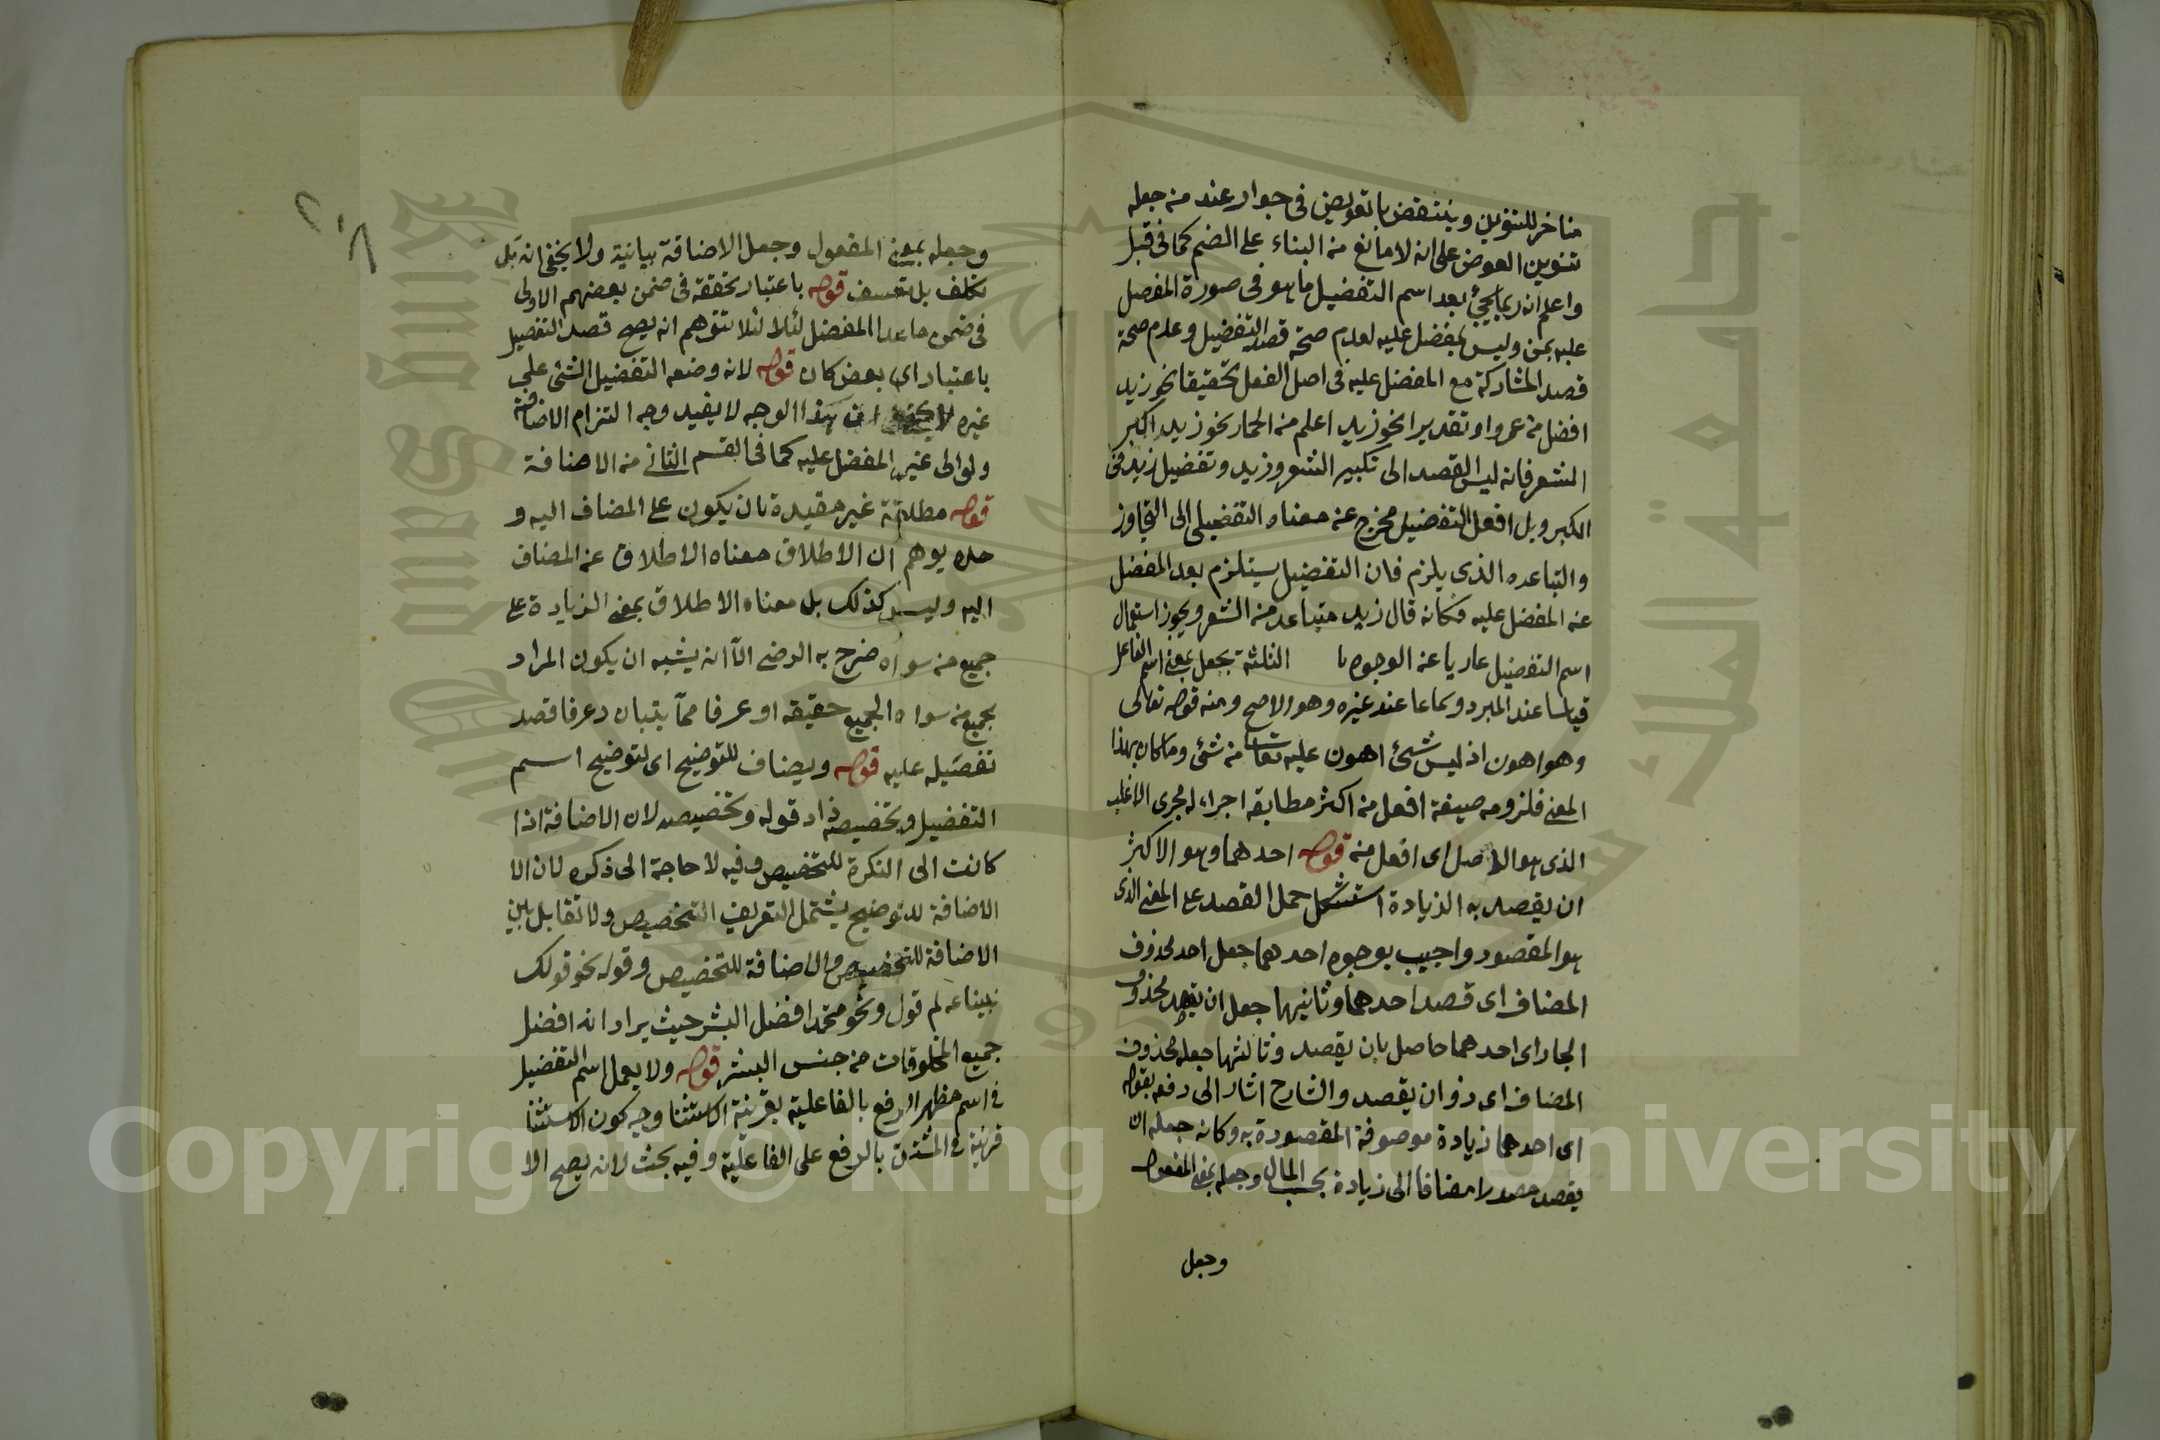 مناخر للتنوين وينتقض بالتعويض في جوار عند من جعله
تنوين العوض على انه لا مانع من البناء على الضم كما في قبل
واعلم ان ربما يجيئ بعد اسم التفضيل ما هو في صورة المفضل
عليه بمن وليس بمفضل عليه لعدم صحة قصد التفضيل وعدم صحة
قصد المشاركة مع المفضل عليه في اصل الفعل تحقيقا نحو زيد
افضل من عمرو او تقديرا نحو زيد اعلم من الحمار نحو زيد اكبر
الشعر فانه ليس القصد الى تكبير الشعر وزيد وتفضيل زيد في
الكبر وبل افعل التفضيل مخرج عن معناه التفضيلي الى التجاوز
والتباعده الذي يلزم فان التفضيل يستلزم بعد المفضل
عنه المفضل عليه فكانه قال زيد متباعد من الشعر ويجوز استعمال
اسم التفضيل عاريا عن الوجوه الثلثة بجعل بمعنى اسم الفاعل
قياسا عند المبرد وسماعا عند غيره وهو الاصح ومنه قوله تعالى
وهو اهون اذ ليس شئ اهون عليه تعالى من شئ وما كان بهذا
المعنى فلزومه صيغة افعل من اكثر مطابقه اجراء له مجرى الاغلب
الذي هو الاصل اى افعل من قوله احدهما وهو الاكثر
ان يقصد به الزيادة استشكل حمل القصد على المعنى الذي
هو المقصود واجيب بوجوه احدهما جعل احد محذوف
المضاف اى قصد احدهما وثانيها جعل ان يقصد محذوف
الجار اى احدهما حاصل بان يقصد وثالثها جعله محذوف
المضاف اى ذو ان يقصد والشارح اشار الى دفعه بقوله
اى احدهما زيادة موصوفة المقصودة به وكانه جعله ان
يقصد مصدرا مضافا الى زيادة بحسب المال وجعله بمعنى المفعول
وجعل
٢٠٨
وجعله بمعنى المفعول وجعل الاضافة بيانية ولا يخفى انه بل
تكلف بل تعسف قوله باعتبار تحققه في ضمن بعضهم الاولى
في ضمن ما عدا المفضل لئلا لئلا تتوهم انه يصح قصد التفضيل
باعتبار اى بعض كان قوله لانه وضعه التفضيل الشئ على
غيره لا يخفى ان هذا الوجه لا يفيد وجه التزام الاضافة
ولو الى غير المفضل عليه كما في القسم الثاني من الاضافة
قوله مطلقة غير مقيدة بان يكون على المضاف اليه و
حده يوهم ان الاطلاق معناه الاطلاق عن المضاف
اليه وليس كذلك بل معناه الاطلاق بمعنى الزيادة على
جميع من سواه صرح به الرضى الا انه يشبه ان يكون المراد
بجميع من سواه الجميع حقيقه او عرفا مما يتبان دعرفا قصد
تفضيله عليه قوله ويضاف للتوضيح اى لتوضيح اسم
التفضيل وتخصيصه زاد قوله وتخصيصه لان الاضافة اذا
كانت الى النكرة للتخصيص وفيه لا حاجة الى ذكره لان الا
الاضافة للتوضيح يشتمل التعريف التخصيص ولا تقابل بين
الاضافة للتخصيص والاضافة للتخصيص وقوله نحو قولك
نبينا عم لم قول ونحو محمد افضل البشر حيث يراد انه افضل
جميع المخلوقات من جنس البشر قوله ولا يعمل اسم التفضيل
في اسم مظهر الرفع بالفاعلية بقرينة الاستثنا وجه كون الاستثنا
قرينة في المشتق بالرفع على الفاعلية وفيه بحث لانه يصح الا
Copyright © King Saud University
جامعة الملك سعود
King Saud University
1957